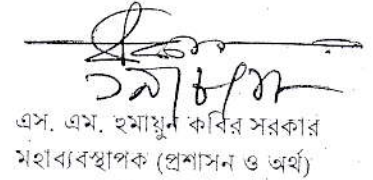 এস. এম. হুমায়ুন কবির সরকার
মহাব্যবস্থাপক (প্রশাসন ও অর্থ)